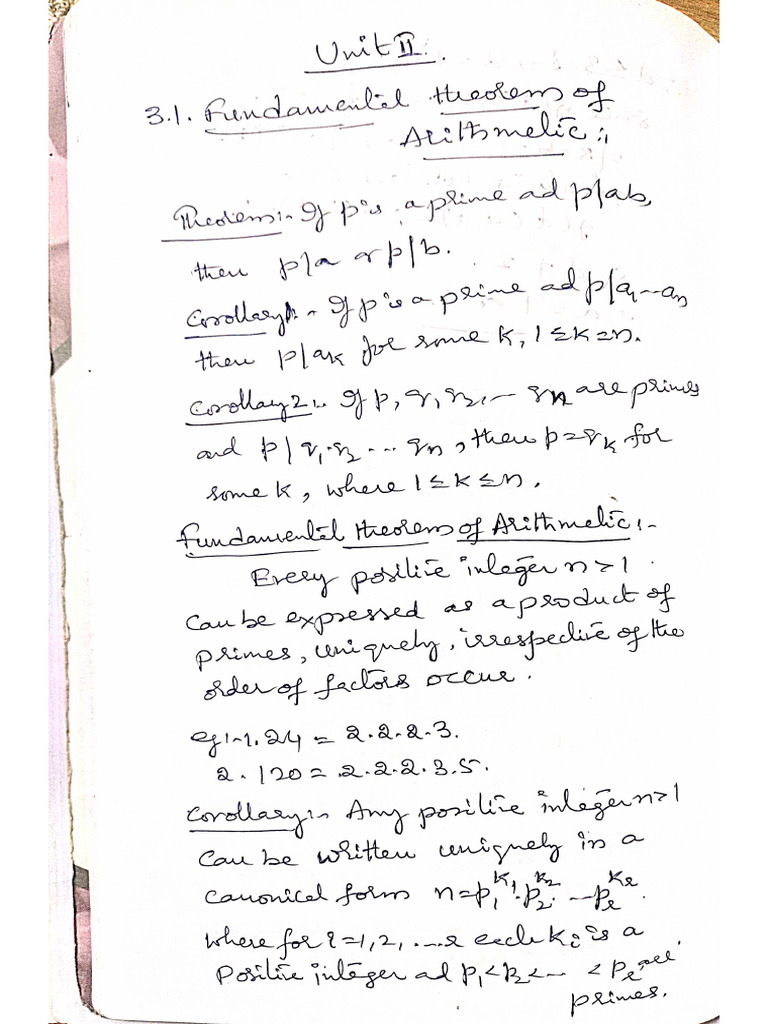 Unit II.
3.1. Fundamental theorem of
Arithmetic:,
Theorem:- If p is a prime ad p|ab,
then p|a or p|b.
Corollary1:- If p is a prime ad p|a₁...aₙ
then p|aₖ for some k, 1≤k≤n.
Corollary2:. If p, q₁q₂,... qₙ are primes
and p|q₁.q₂... qₙ, then p=qₖ for
some k, where 1≤k≤n.
Fundamental theorem of Arithmetic:-
Every positive integer n>1
can be expressed as a product of
primes, uniquely, irrespective of the
order of factors occur.
eg:-1. 24 = 2.2.2.3.
2. 120 = 2.2.2.3.5.
Corollary:- Any positive integer n>1
can be written uniquely in a
canonical form n=p₁^k₁.p₂^k₂...pᵣ^kᵣ.
where for i=1,2,...r each kᵢ is a
Positive integer ad p₁<p₂<... <pᵣ are
primes.